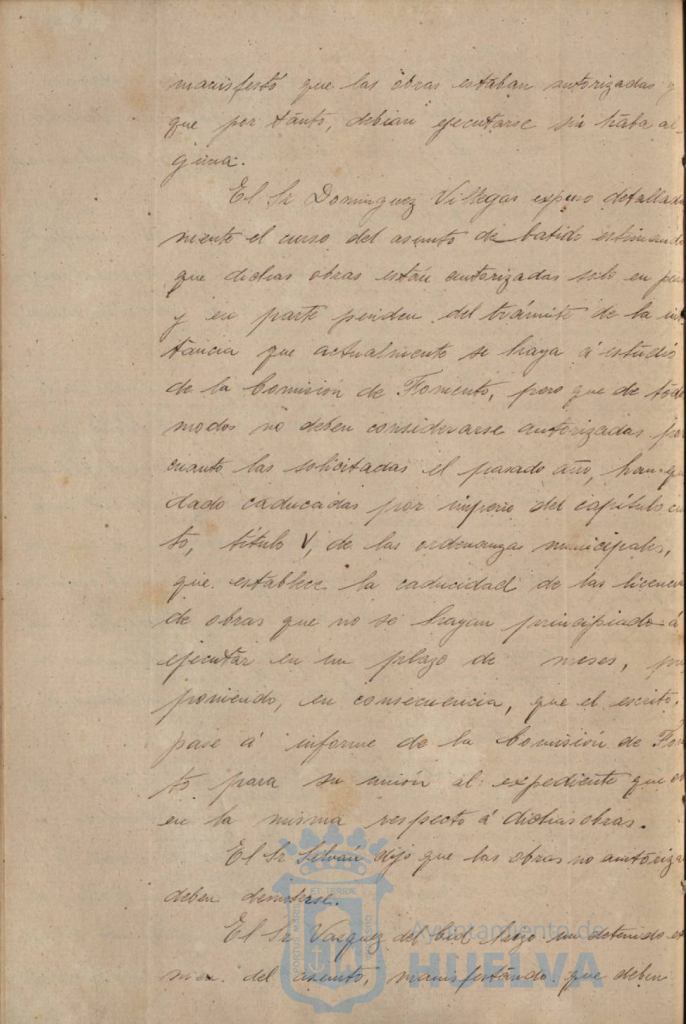 manifestó que las obras estaban autorizadas y
que por tanto, debian ejecutarse sin traba al-
guna.
El Sr Dominguez Villegas expuso detallada
mente el curso del asunto de batido estimando
que dichas obras están autorizadas solo en par
y en parte penden del trámite de la ins
tancia que actualmente se haya á estudio
de la Comision de Fomento, pero que de todos
modos no deben considerarse autorizadas por
cuanto las solicitadas el pasado año, han que
dado caducadas por imperio del capítulo cu
to, título V, de las ordenanzas municipales,
que establece la caducidad de las licencias
de obras que no se hayan principiado á
ejecutar en un plazo de meses, pro
poniendo, en consecuencia, que el escrito,
pase á informe de la Comisión de Fom
to para su unión al expediente que ob
en la misma respecto á dichas obras.
El Sr Silván dijo que las obras no autoriza
deben
El Sr Vazquez del Cid hizo un detenido
del asunto, manifestando que deben
Ayuntamiento de
HUELVA